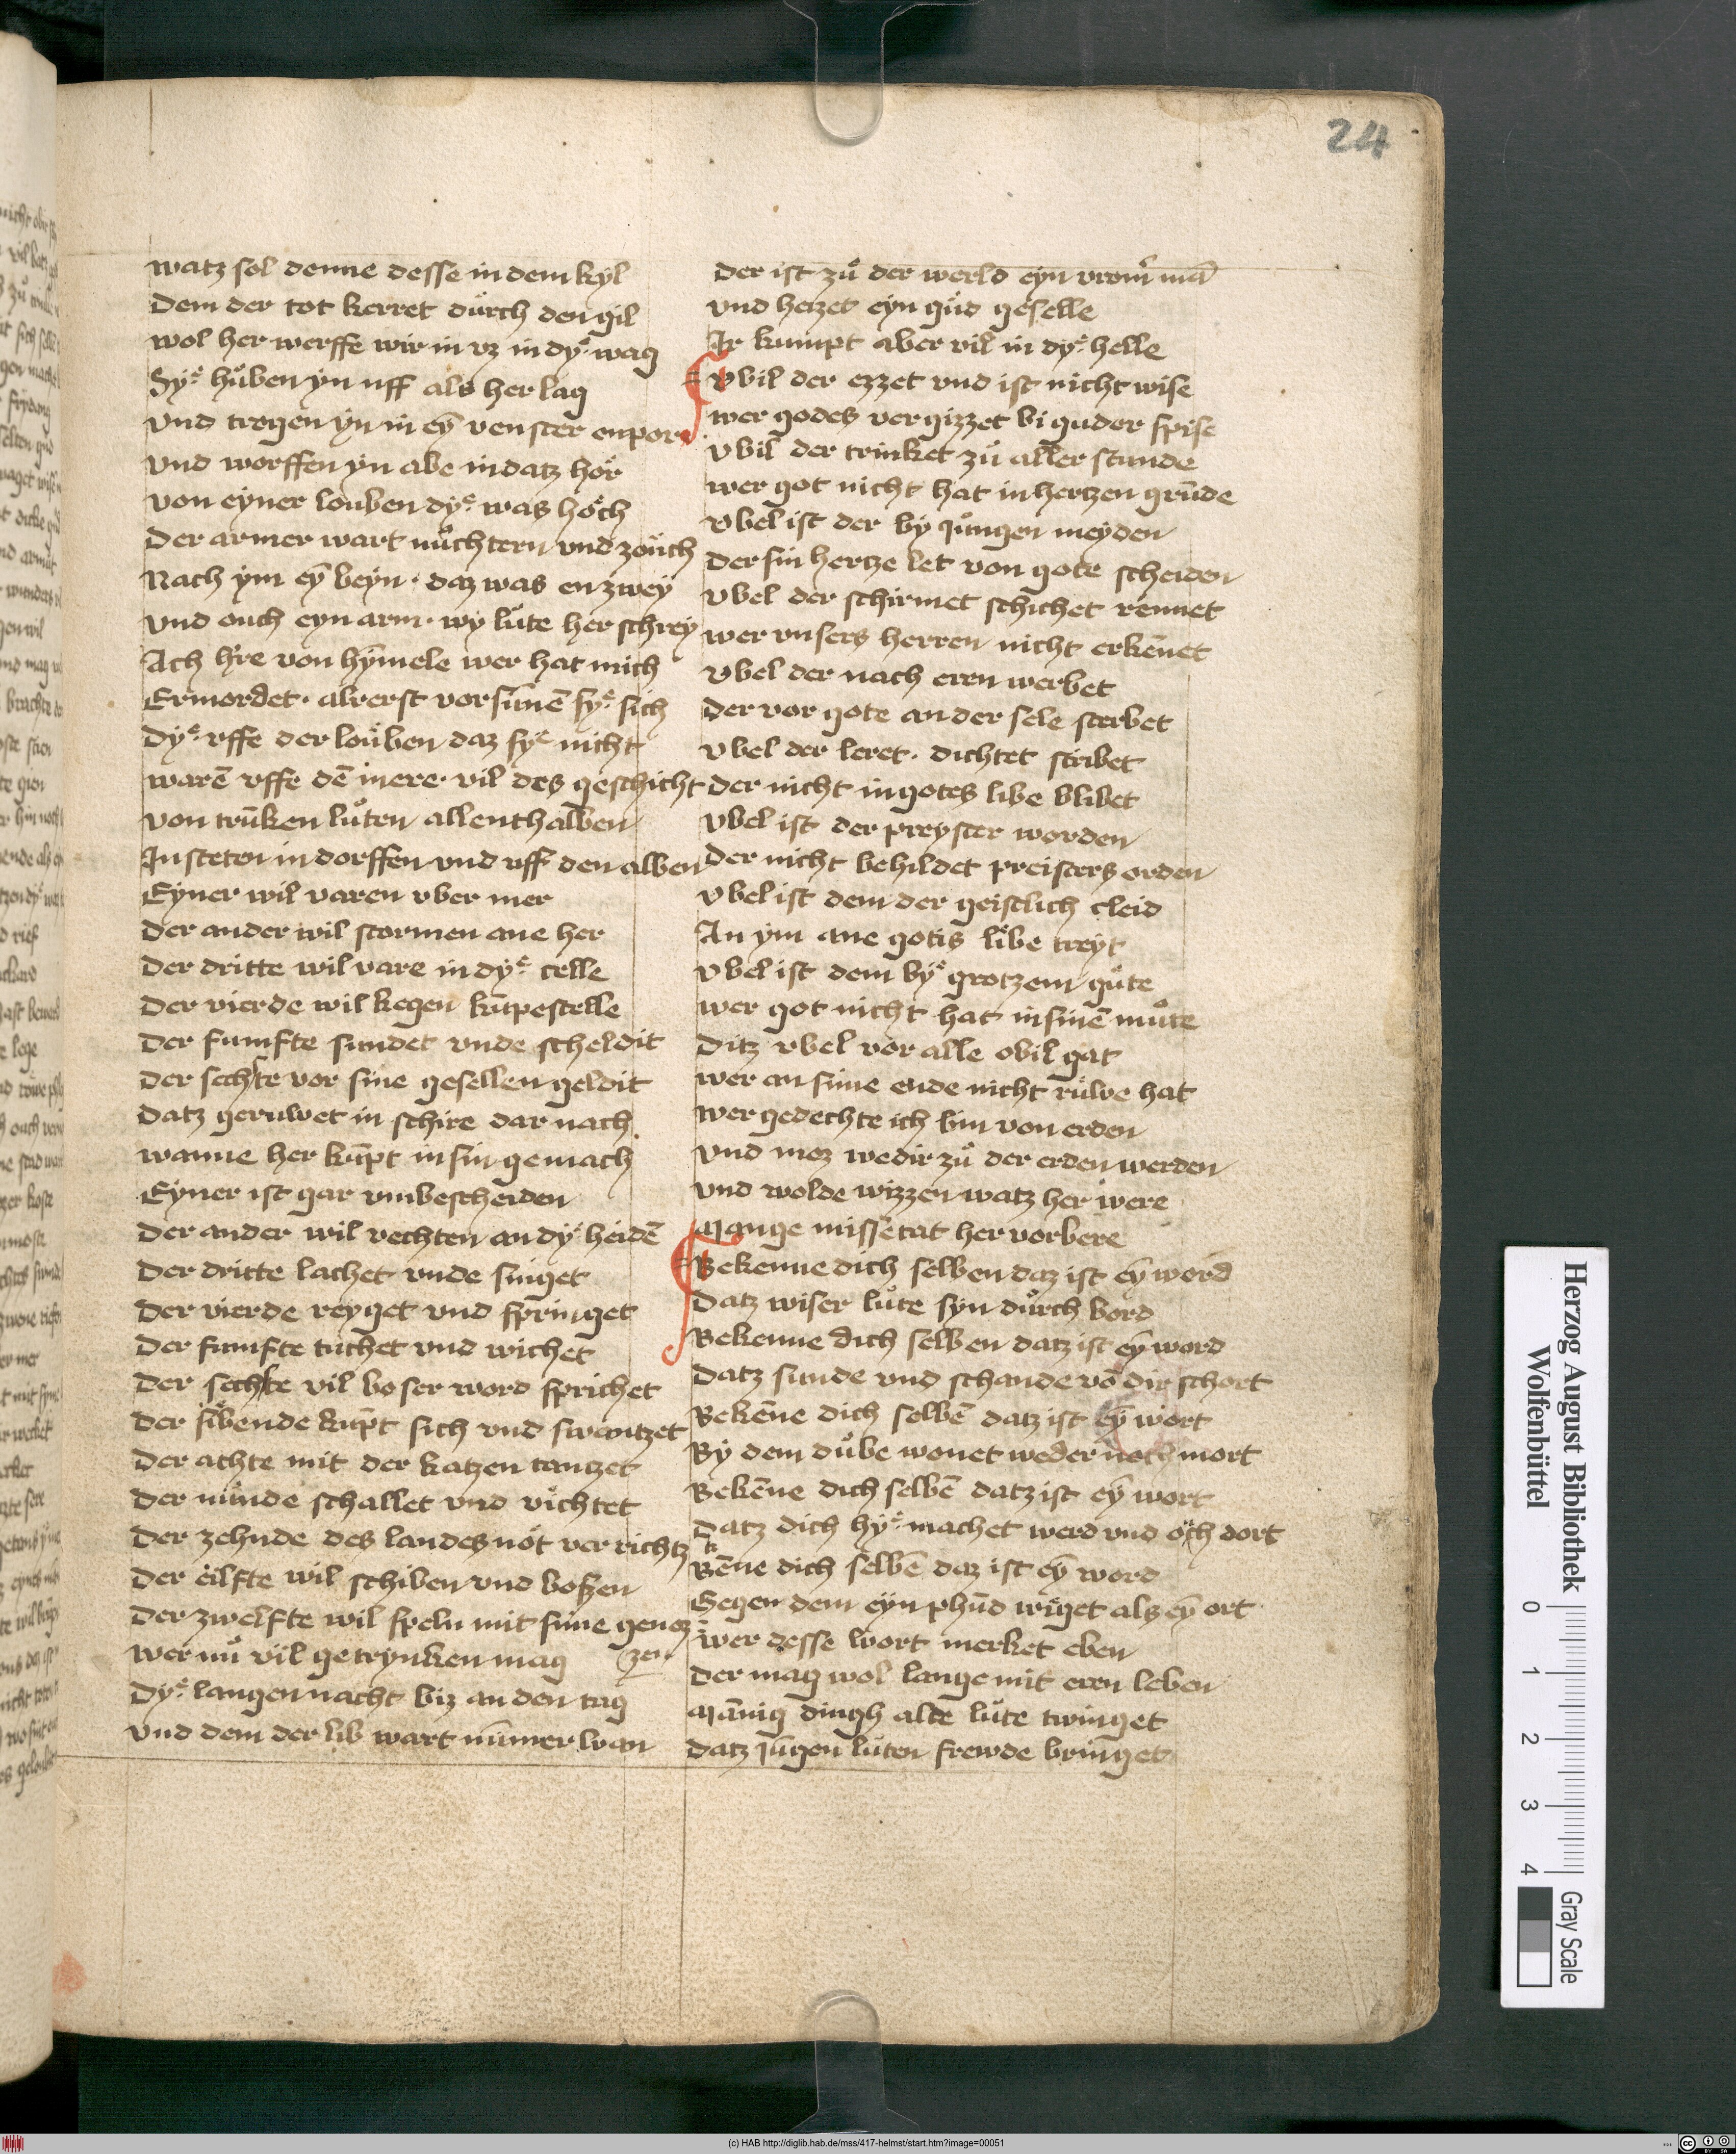 24
watz sol denne desse in dem kyl
Dem der tot kerret důrch den gil
wol her werffe wir in vz in dyͤ wag
Syͤ hůben yn uff als her lag
vnd trogen yn in eȳ venster enpor
vnd worffen yn abe in datz hor
von eyner louben dyͤ was hoͤch
Der armer wart nůchtern vnd zoůch
Nach ym eȳ beyn · daz was enzwey
vnd ouch eyn arm · wy lůte her schrey
Ach h're von hymele wer hat mich
Ermordet · alrerst vorsūnē syͤ sich
Dyͤ vffe der loůben daz syͤ nicht
warē vffe dē mere · vil des geschicht
von trūken lůten allenthalben
In steten in dorffen vnd vff den alben
Eyner wil varen vber mer
Der ander wil stormen ane her
Der dritte wil vare in dyͤ celle
Der vierde wil kegen kūpestelle
Der fumfte sundet vnde scheldit
Der sechste vor sine gesellen geldit
Datz geruwet in schire dar nach
wanne her kūpt in sin gemach
Eyner ist gar vmbescheiden
Der ander wil vechten an dyͤ heidē
Der dritte lachet vnde singet
Der vierde reyget vnd springet
Der fumfte tuchet vnd wichet
Der sechste vil boser word sprichet
Der sibende kūpt sich vnd swantzet
Der achte mit der katzen tantzet
Der nůnde schallet vnd vichtet
Der zehnde des landes not verrichtz
Der eilfte wil schiben vnd boszen
Der zwelfte wil speln mit sine genoz
zen
wer nů vil getrynken mag
Dyͤ langen nacht biz an den tag
vnd dem der lib wart nūmer wan
Der ist zů der werld eyn vrom' mā
vnd heizet eyn gůd geselle
Ir kumpt aber vil in dyͤ helle
vbil der ezzet vnd ist nicht wise
wer godes vergizzet bi guder spise
vbil der trinket zů aller stunde
wer got nicht hat in hertzen grūde
vbel ist der by jůngen meyden
Der sin hertze let von gote scheiden
vbel der schirmet schichet rennet
wer vnsers herren nicht erkēnet
vbel der nach eren werbet
Der vor gote an der sele sterbet
vbel der leret · dichtet scribet
Der nicht in gotes libe blibet
vbel ist der preyster worden
Der nicht behildet preisters orden
vbel ist dem der geistlich cleid
An ym ane gotis libe treyt
vbel ist dem byͤ grotzem gůte
wer got nicht hat in sinē můte
Ditz vbel vor alle obil gat
wer an sime ende nicht růwe hat
wer gedechte ich bin von erden
vnd moz wedir zů der erden werden
vnd wolde wizzen watz her were
Mange missetat her vorbere
Bekenne dich selben daz ist eȳ word
Datz wiser lůte syn důrch bord
Bekenne dich selben datz ist eȳ word
Datz sunde vnd schande vō dir schort
Bekēne dich selbē datz ist eȳ wort
By dem důbe wonet weder noch mort
Bekēne dich selbē datz ist eȳ wort
Datz dich hyͤ machet werd vnd och dort
Bekēne dich selbē daz ist eȳ word
Gegen dem eyn phūd wiget als eȳ ort
wer desse wort merket eben
Der mag wol lange mit eren leben
Mānig dingh alde lůte twinget
Datz jūgen lůten frewde bringet
Herzog August Bibliothek
Wolfenbüttel
0 1 2 3 4
Gray Scale
(c) HAB http://diglib.hab.de/mss/417-helmst/start.htm?image=00051